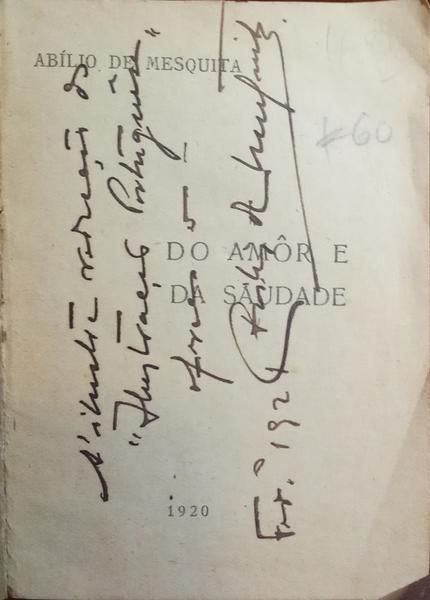 ABÍLIO DE MESQUITA
DO AMÔR E
DA SAUDADE
1920
A' ilustre redacção da
"Ilustração Portuguêsa"
oferece o
Abílio de Mesquita
60